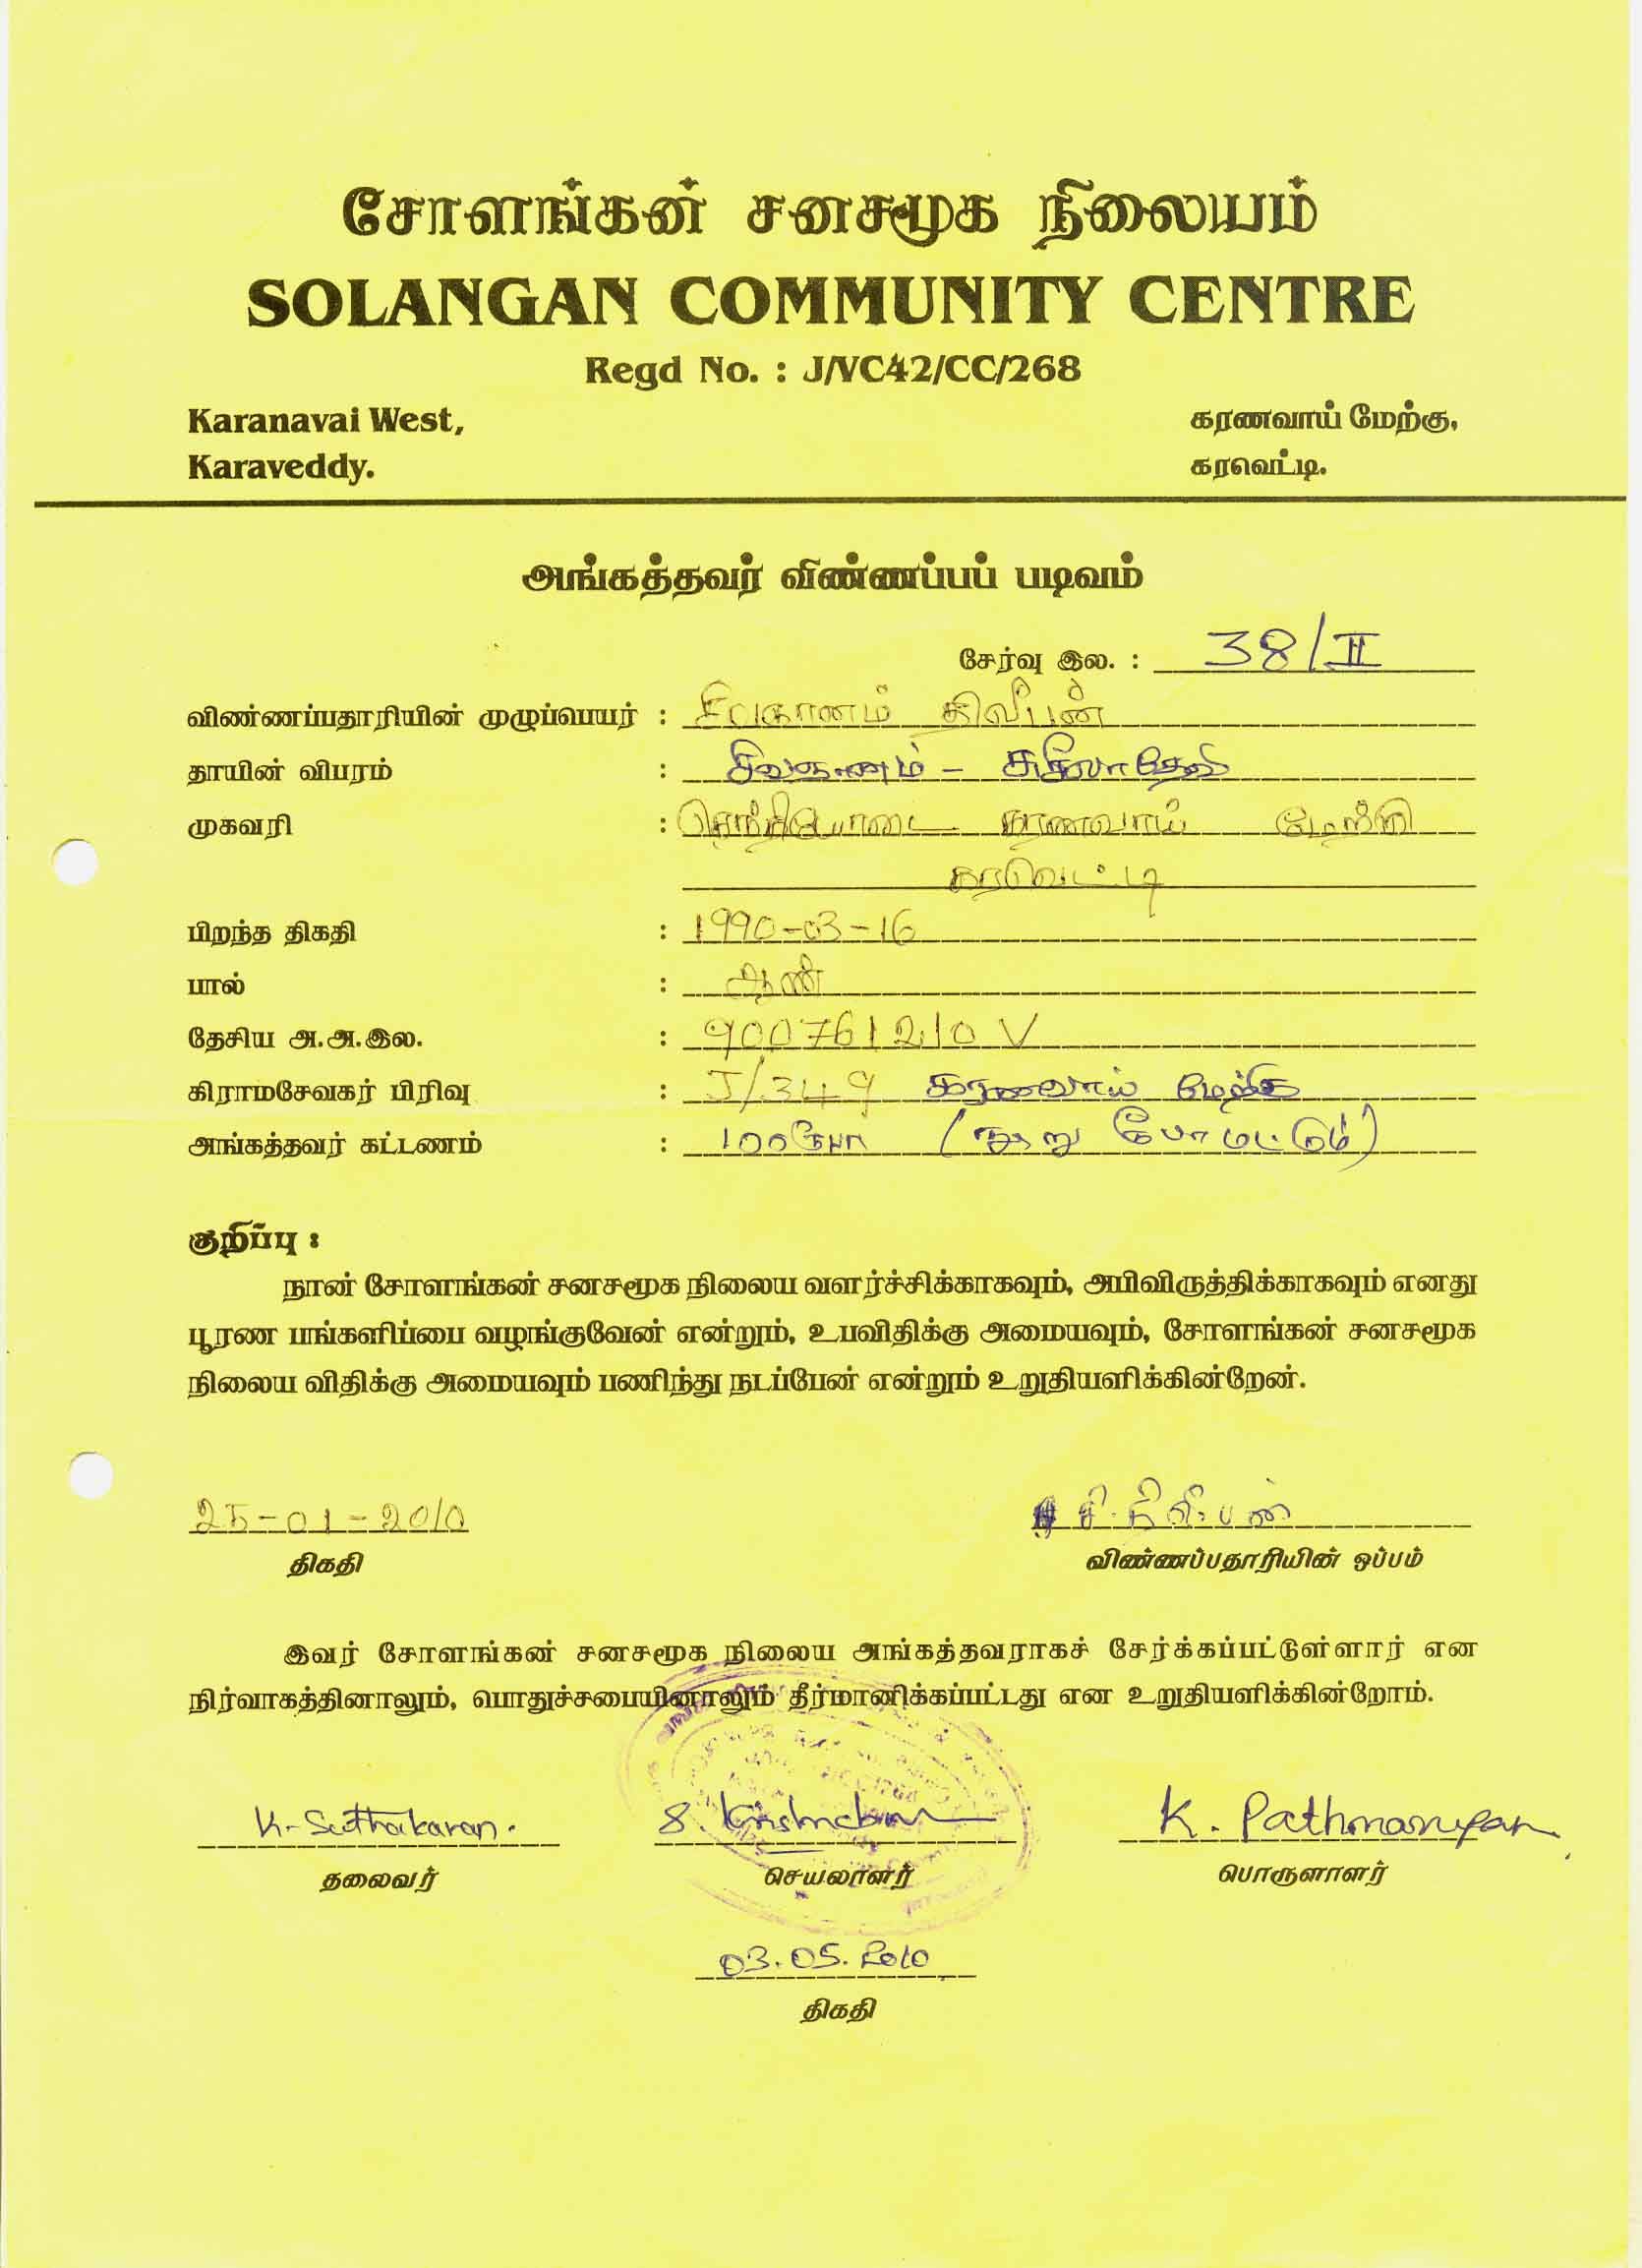 சோளங்கன் சனசமூக நிலையம்
SOLANGAN COMMUNITY CENTRE
Regd No. : J/VC42/CC/268
Karanavai West, கரணவாய் மேற்கு,
Karaveddy. கரவெட்டி.
அங்கத்தவர் விண்ணப்பப் படிவம்
சேர்வு இல. : 38/II
விண்ணப்பதாரியின் முழுப்பெயர் : சிவஞானம் திலீபன்
தாயின் விபரம் : சிவஞானம் - சுசீலாதேவி
முகவரி : கரணவாய் மேற்கு
கரவெட்டி
பிறந்த திகதி : 1990-03-16
பால் : ஆண்
தேசிய அ.அ.இல. : 900761210 V
கிராமசேவகர் பிரிவு : J/349 கரணவாய் மேற்கு
அங்கத்தவர் கட்டணம் : 100ரூபா (நூறு ரூபா மட்டும்)
குறிப்பு :
நான் சோளங்கன் சனசமூக நிலைய வளர்ச்சிக்காகவும், அபிவிருத்திக்காகவும் எனது
பூரண பங்களிப்பை வழங்குவேன் என்றும், உபவிதிக்கு அமையவும், சோளங்கன் சனசமூக
நிலைய விதிக்கு அமையவும் பணிந்து நடப்பேன் என்றும் உறுதியளிக்கின்றேன்.
25-01-2010 சி.திலீபன்
திகதி விண்ணப்பதாரியின் ஒப்பம்
இவர் சோளங்கன் சனசமூக நிலைய அங்கத்தவராகச் சேர்க்கப்பட்டுள்ளார் என
நிர்வாகத்தினாலும், பொதுச்சபையினாலும் தீர்மானிக்கப்பட்டது என உறுதியளிக்கின்றோம்.
K. Suthakaran. S. K. Pathmanypan
தலைவர் செயலாளர் பொருளாளர்
03.05.2010
திகதி